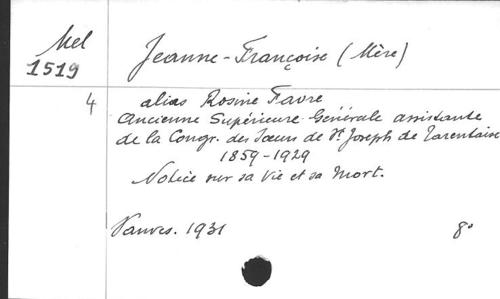 Mel
1519
Jeanne-Françoise (Mère)
4
alias Rosine Favre
Ancienne Supérieure Générale assistante
de la Congr. des Sœurs de St Joseph de Tarentaise
1859-1929
Notice sur sa vie et sa mort.
Vanves. 1931
8°